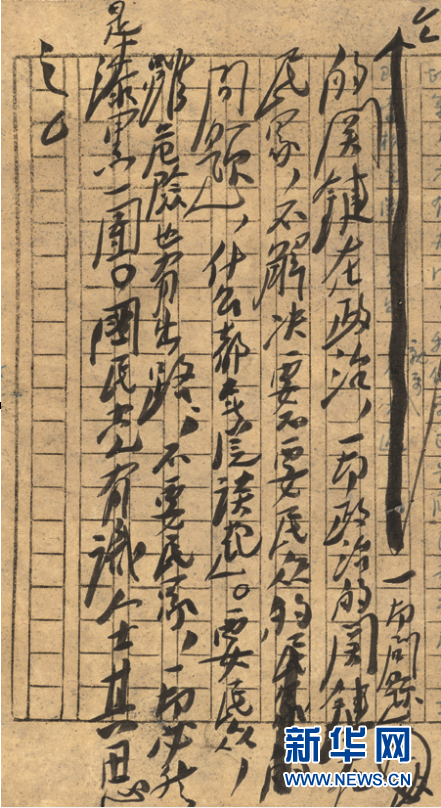 一切问题
的関鍵在政治,一切政治的関鍵在
民眾,不解决要不要民众的
问题,什么都無從谈起。要民众,
雖危险也有出路,不要民眾,一切必然
是漆黑一團。國民党有識之士其思
之。
新华网
WWW.NEWS.CN